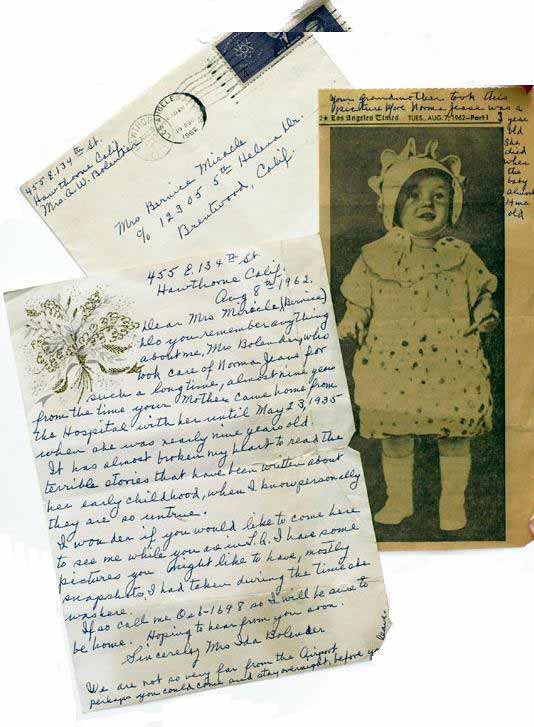 LOS ANGELES
1962
455 E. 134th St.
Hawthorne Calif.
Mrs. A. W. Bolender
Mrs Bernice Miracle
c/o 12305 5th Helena Dr.
Brentwood, Calif
Your grandmother took this
picture Here Norma Jeane was a
year
old
She
died
when
the
baby
almost
14mo
old
2★ Los Angeles Times TUES., AUG. 7, 1962—Part I
455 E. 134th St
Hawthorne Calif.
Aug 8th 1962.
Dear Mrs Miracle, (Bernice)
Do you remember anything
about me, Mrs Bolender, who
took care of Norma Jeane for
such a long time, almost nine years
from the time your Mother came home from
the Hospital with her until May 23, 1935
when she was nearly nine years old
It has almost broken my heart to read the
terrible stories that have been written about
her early childhood, when I know personally
they are so untrue.
I wonder if you would like to come here
to see me while you are in L.A. I have some
pictures you might like to have, mostly
snapshots, I had taken during the time she
was here.
If so call me Os6-1698 so I will be sure to
be home. Hoping to hear from you soon.
Sincerely Mrs Ida Bolender
We are not so very far from the Airport
perhaps you could come and stay overnight, before you leave.